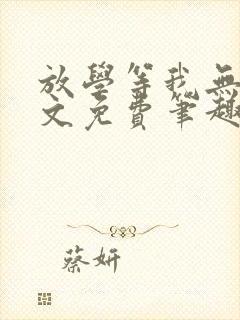 放學等我無
文免費筆趣
蔡妍